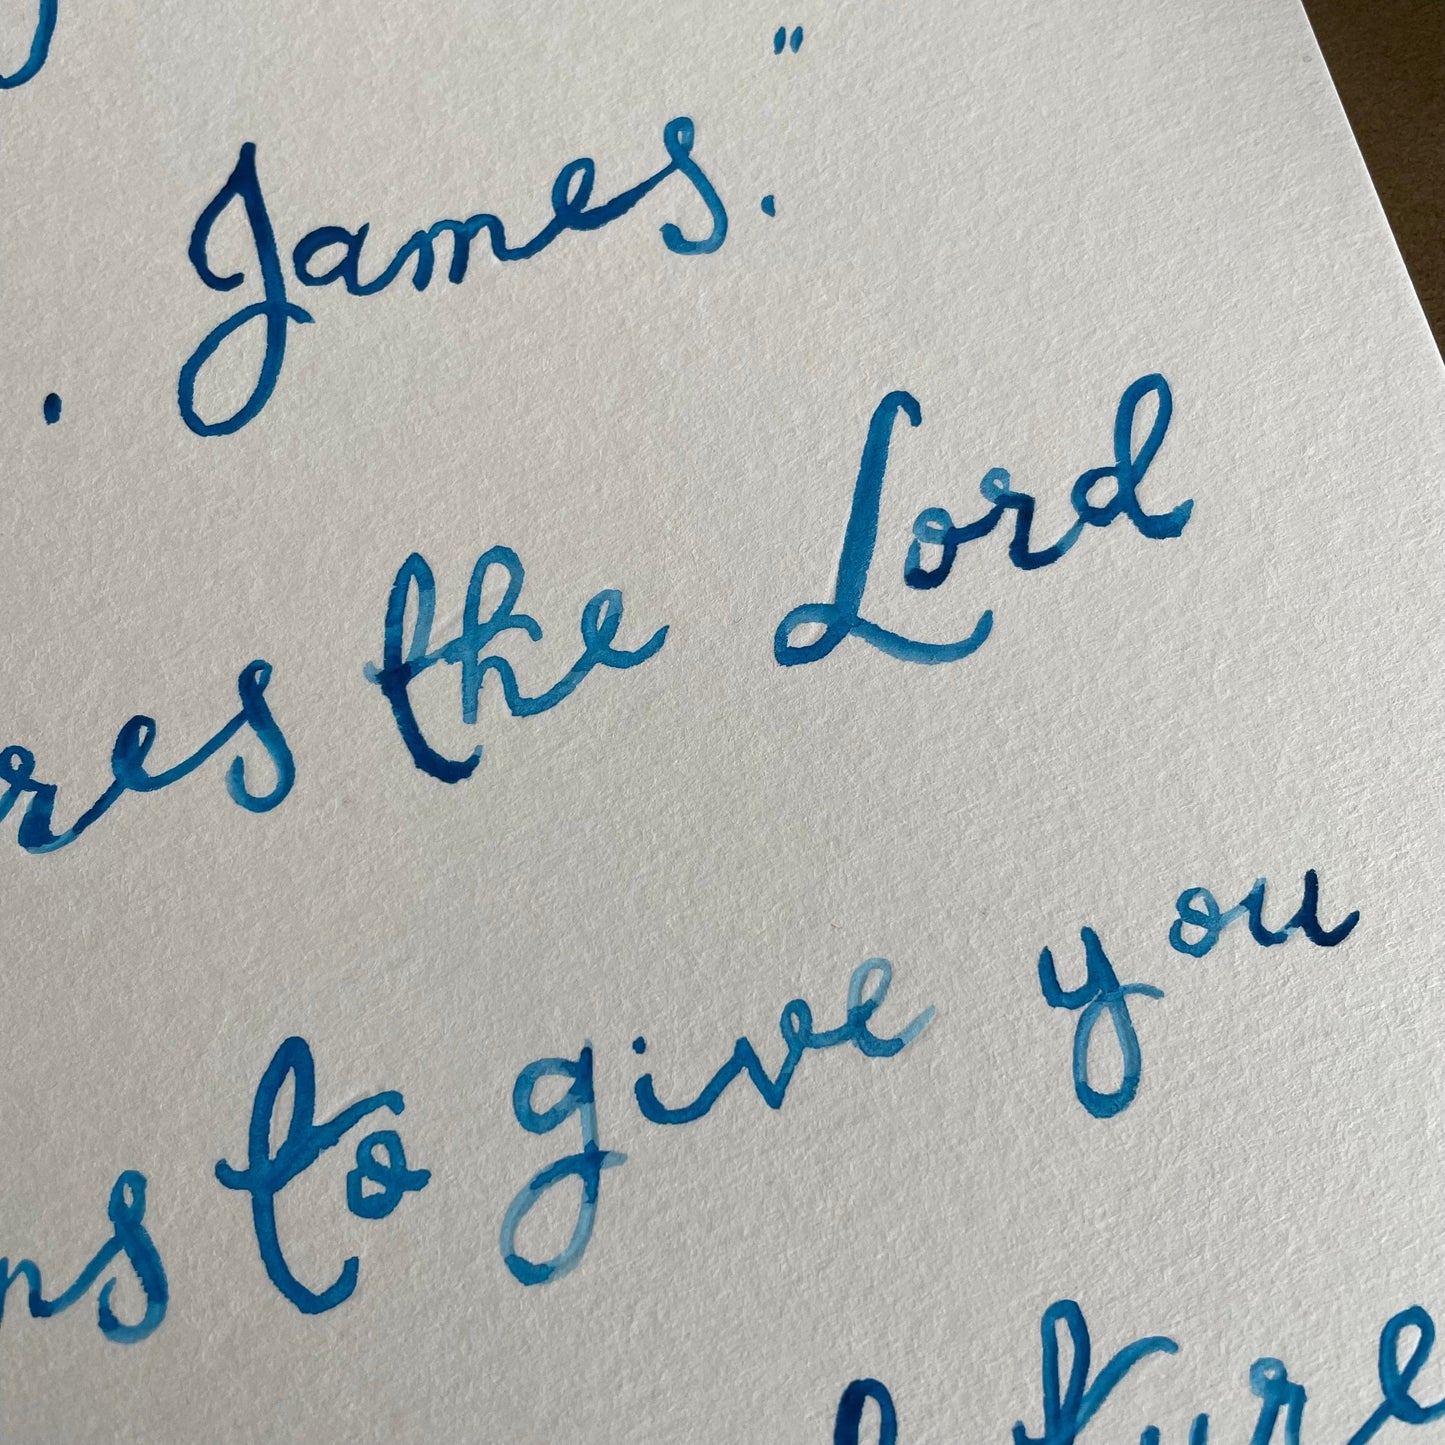 "
. James.
res the Lord
ns to give you
ture